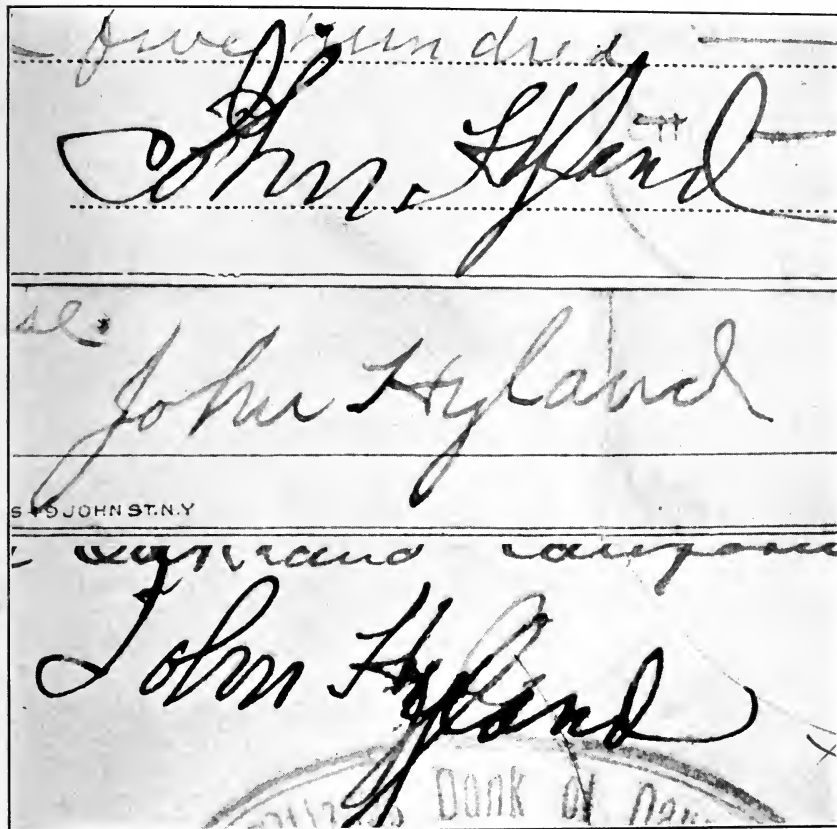 five hundred
John Hyland
se.
John Hyland
S-19 JOHN ST. N.Y
Oakland
John Hyland
Bank of